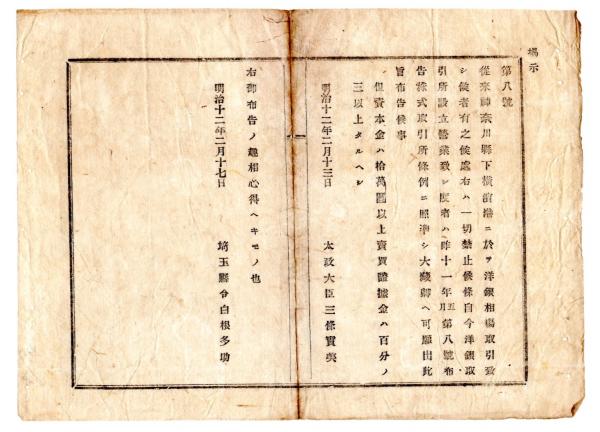 揭示
第八號
從來神奈川縣下橫濱港ニ於テ洋銀相場取引致
シ候者有之候處右ハ一切禁止候條自今洋銀取
引所設立營業致シ度者ハ昨十一年五月第八號布
告株式取引所條例ニ照準シ大藏卿ヘ可願出此
旨布告候事
但資本金ハ拾萬圓以上賣買證據金ハ百分ノ
三以上タルヘシ
明治十二年二月十三日
太政大臣三條實美
右御布告ノ趣相心得ヘキモノ也
明治十二年二月十七日
埼玉縣令白根多助